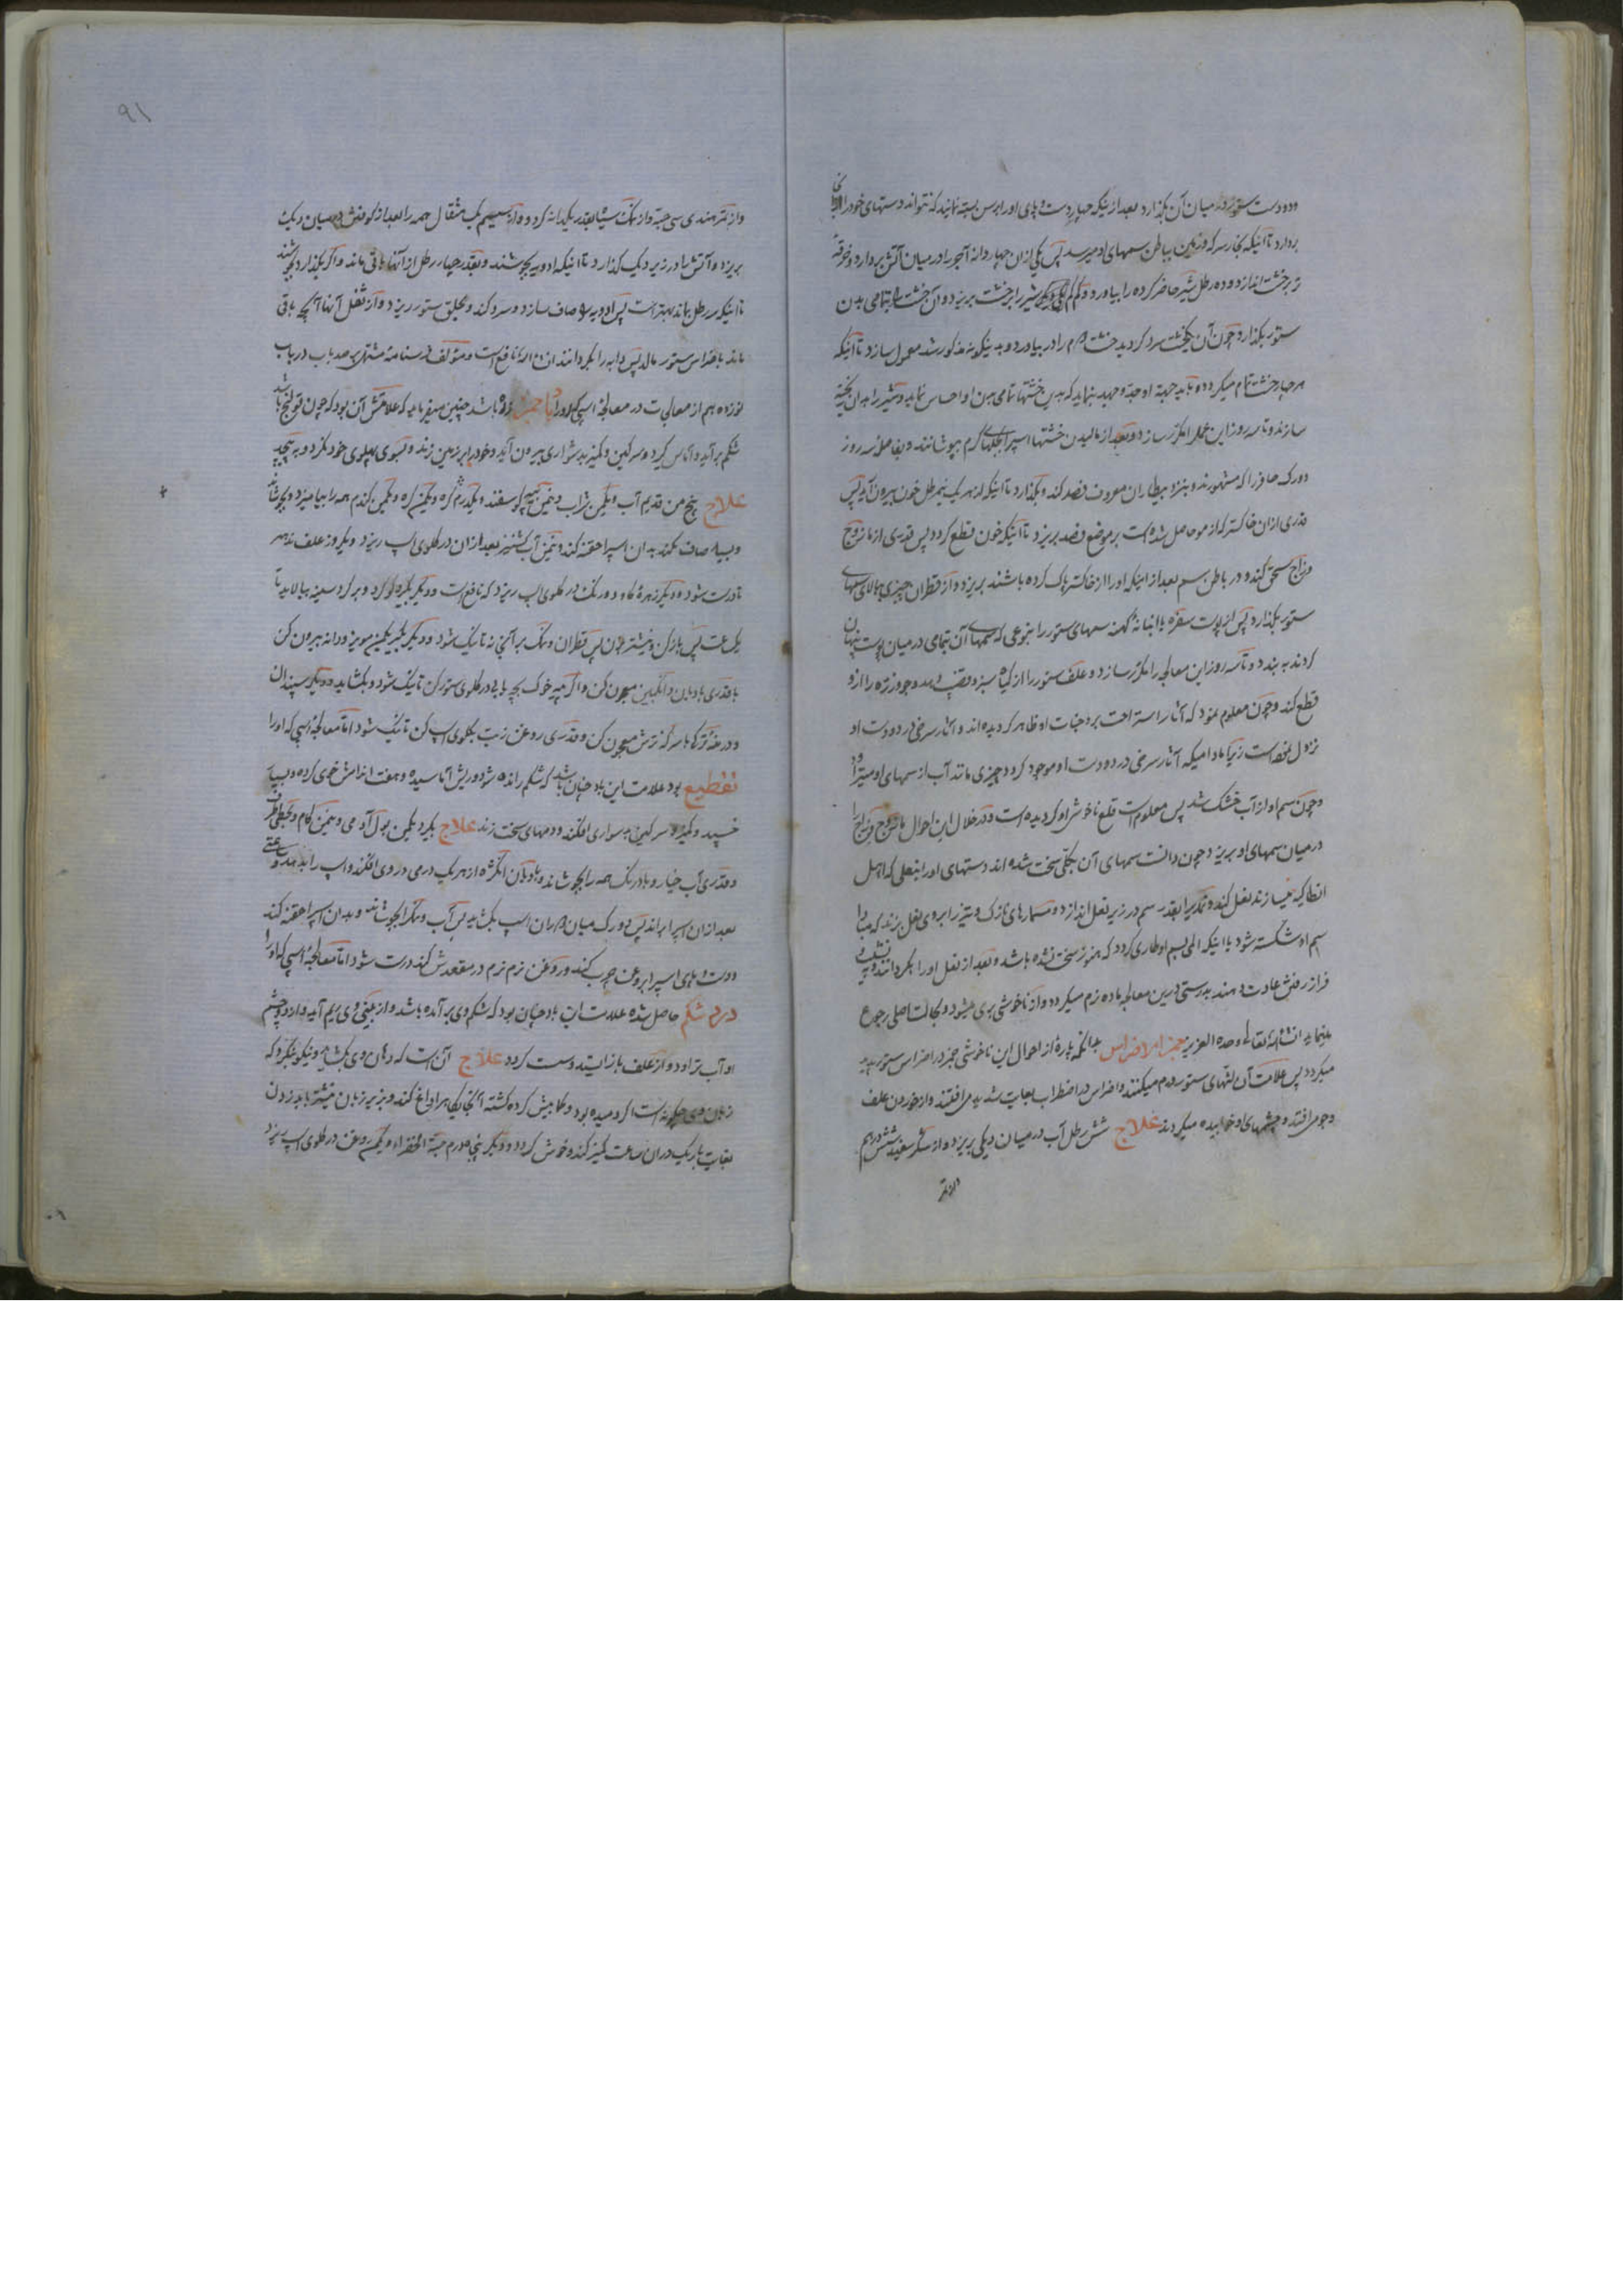 ودودست ستور را در میان آن بگذارد بعد از اینکه چهار دست و پای او را برسن بسته نمایند که نتواند دستهای خود را از آنجا
بردارد تا آنیکه بخار سرکه و زمین بباطن سمهای او میرسد پس یکی از آن چهار دانه آجر را در میان آتش بردارد و خرقه
بر خشت اندازد و ده رطل شیر حاضر کرده را بیاورد و کم کم شیر را بر خشت بریزد و آن خشت را بتمامی بدن
ستور بگذارد چون آن یکخشت سرد گردید خشت دوم را در بیاورد و به نیگونه مذکور شد معمول سازد تا آنیکه
هر چهار خشت تمام میگردد و باید جهد و جهد بنماید که بدین خشتها تمامی بدن او احساس نماید و شیر را بدان
سازند و تا سه روز این عمل را مکرر سازد و بعد از مالیدن خشتها اسپرا بجلهای گرم بپوشانند و بفاصله سه روز
دو رک صافن را که مشهورند و بنزد بیطاران معروف فصد کند و بگذارد تا آنیکه از هر یک نیم رطل خون بیرون آید پس
قدری از آن خاکستر که از مو حاصل شده است بر موضع فصد بریزد تا اینکه خون قطع گردد پس قدری از مازوج
و زاج سحق کند و در باطن سم بعد از اینکه او را از خاکستر پاک کرده باشند بریزد و از قطران چیزی ببالای سمهای
ستور بگذارد پس از پوست سفره یا انبانهٔ کهنه سمهای ستور را بنوعی که سمهای آن بتمامی در میان پوست پنهان
گردند به بندد و تا سه روز این معالجه را مکرر سازد و علف ستور را از گیاه سبز و قضب بدهد و جو و زرّه را از او
قطع کند و چون معلوم نمود که آثار استراحت بر وجنات او ظاهر گردیده اند و آثار سرخی در دو دست او
نزول نموده است زیرا مادامیکه آثار سرخی در دو دست او موجود گردد چیزی مانند آب از سمهای او میترا
و چون سم او از آب خشک شد پس معلوم است قلع ناخوشی او گردیده است و در خلال این احوال مازوج و زاج را
در میان سمهای او بریزد و چون دانست سمهای آن بکلی سخت شده اند دستهای او را بنعلی که اهل
انطاکیه میسازند نعل کند و نمد را بقدر سم در زیر نعل اندازد و مسمارهای نازک و تیز را بر وی نعل بزند که مبادا
سم او شکسته شود یا اینکه المی بسم او طاری گردد که هنوز سخت نشده باشد و بعد از نعل او را بگردانند و به نشیب و
فراز رفتن عادت دهند بدرستی درین معالجه ماده نرم میگردد و از ناخوشی بری میشود و بحالت اصلی رجوع
مینماید انشاء الله تعالی وحده العزیز حمز الاضراس بدانکه پارهٔ از احوال این ناخوشی حمز در اضراس ستور پدید
میگردد پس علامت آن لثهای ستور ورم میکنند و اضراس در اضطراب بغایت شدید می افتند و از خوردن علف
و جو می افتد و چشمهای او خوابیده میگردند علاج شش رطل آب در میان دیگی بریزد و از شکر سفید شش درهم
و از تمر
٩١
و از تمر هندی سی حبه و از نمک سیاه بقدر یکدانه گردو و از سیسم یک مثقال همه را بعد از کوفتن در میان دیگ
بریزد و آتش را در زیر دیگ گذارد تا اینکه ادویه بجوشند و بقدر چهار رطل از آنها باقی ماند و اگر بگذارد بجوشند
تا اینکه سه رطل بماند بهتر است پس ادویه را صاف سازد و سرد کند و بحلق ستور ریزد و از ثفل آنها آنچه باقی
ماند باضراس ستور مالد پس دابه را بگردانند ان شاء الله نافع است و مؤلف فرسنامه مشتهر بصد باب در باب
نوزدهم از معالجات در معالجهٔ اسپی که او را باد حمز باشد چنین میفرماید که علامتش آن بود که چون قولنج باشد
شکم بر آید و آماس گیرد و سرگین و کمیز بدشواری بیرون آید و خود را بر زمین زند و بسوی پهلوی خود نگرد و بر پیچد
علاج پنج من قدیم آب و یکمن شراب و نیمن پیه گوسفند و یکدرم کره و یکمن کندم همه را بیامیزد و بجوشاند
و بپالاید صاف بکند بدان اسپرا حقنه کند و نیمن آب کشنیز بعد از آن در گلوی اسپ ریزد و یکروز علف ندهد
تا درست شود و دیگر زهرهٔ گاو و دو رنگ در گلوی اسپ ریزد که نافع است و دیگر بگیرد گوگرد و بر گرد سینه بیالاید تا
یکساعت پس باز کن و نیشتر بزن پس قطران و نمک بر آنجا نه تا نیک شود و دیگر بگیر یکمن مویز و دانه بیرون کن
با قدری بادیان و انگبین معجون کن و اگر پیه خوک بچه یابی در گلوی ستور کن تا نیک شود و بگشاید و دیگر سپندان
و درخت ترک با سرکهٔ ترش معجون کن و قدری روغن زیت بگلوی اسپ کن تا نیک شود اما معالجهٔ اسپی که او را
تقطیع بود علامت این باد چنان باشد که شکم رانده شود و ریش آماسیده و هفت اندامش خوی کرده و بسیار
خسپد و کمیز و سرگین بدشواری افکند و دمهای سخت زند علاج بگیرد یکمن بول آدمی و نیمن کام و قحطی تخم
و قدری آب خیار و بادرنگ همه را بجوشاند و بادیان انگزه از هر یک درمی در وی افکند و اسپ را بدهد و ساعتی
بعد از آن اسپرا براند پس دو رگ میان دو ران اسپ بگشاید پس آب و نمک را بجوشاند و بدان اسپرا حقنه کند
و دست و پای اسپرا بروغن چرب کند و روغن نرم نرم در مقعدش کند درست شود اما معالجهٔ اسپی که او را
درد شکم حاصل شده علامت این باد چنان بود که شکم وی برآمده باشد و از بینی وی ریم آید و از دو چشم
او آب تراود و از علف باز ایستد و سست گردد علاج آن است که دهان وی بگشاید و نیکو بنگرد که
زبان وی چگونه است اگر دمیده بود و کامیش کرده گشته آنجایگاه را داغ کند و بزیر زبان نیشتر باید زدن
بغایت باریک در آن ساعت کمیز کند و خوش گردد و دیگر پنج درم حبة الخضراء و یکمن روغن در گلوی اسپ ریزد